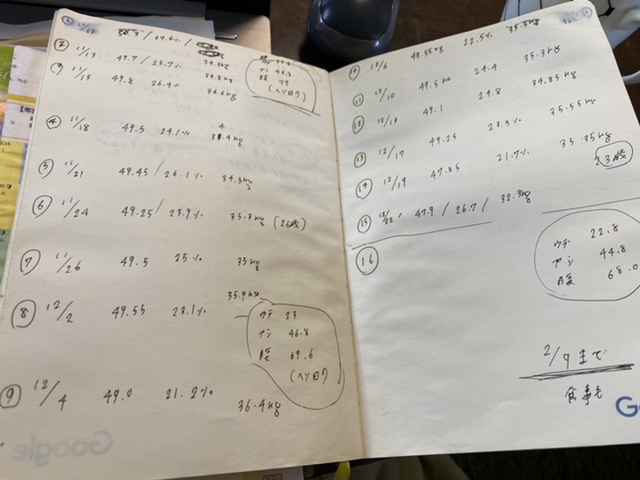 ② 11/13 49.7 / 25.7%
③ 11/15 49.8 26.4% 34.6kg
④ 11/18 49.5 24.1%
⑤ 11/21 49.45 / 26.1% 34.3kg
⑥ 11/24 49.25 / 23.9% 35.3kg (26歳)
⑦ 11/26 49.5 25% 35kg
⑧ 12/2 49.55 23.1% 35.9kg
ウデ 23
アシ 46.8
腹 69.6
(ヘソ口)
⑨ 12/4 49.0 21.2% 36.4kg
Google
⑩ 12/6 48.55kg 22.5% 35.5kg
⑪ 12/10 49.5kg 24.4 35.3kg
⑫ 49.1 24.8 34.85kg
⑬ 12/17 49.25 23.5% 35.55kg
⑭ 12/19 47.85 21.7% 35.35kg
23歳
⑮ 12/22 47.9 / 26.7 / 32.3kg
⑯
ウデ 22.8
アシ 44.8
腹 68.0
2/9まで
食事も
G